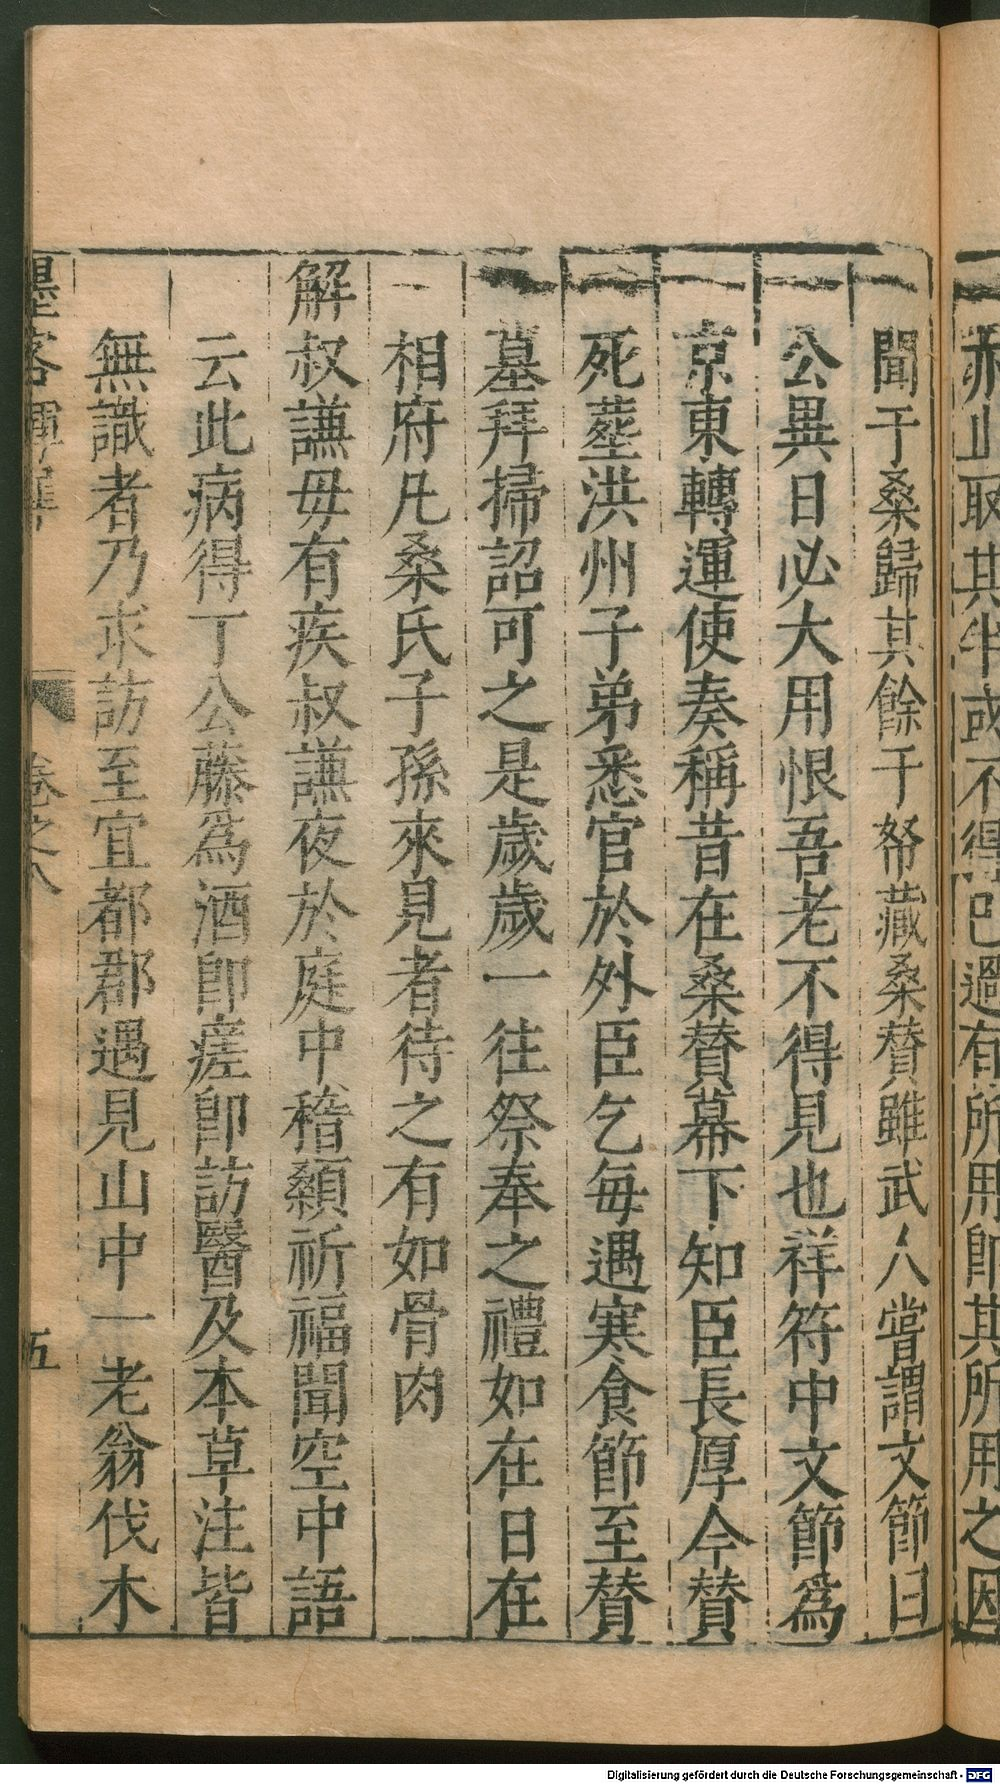 亦止取其半或不得已過有所用卽其所用之因
聞于桑歸其餘于帑藏桑賛雖武人嘗謂文節曰
公異日必大用恨吾老不得見也祥符中文節爲
京東轉運使奏稱昔在桑賛幕下知臣長厚今賛
死塟洪州子弟悉官於外臣乞每遇寒食節至賛
墓拜掃詔可之是歲歲一往祭奉之禮如在日在
相府凡桑氏子孫來見者待之有如骨肉
解叔謙毋有疾叔謙夜於庭中稽顙祈福聞空中語
云此病得丁公藤爲酒卽瘥卽訪醫及本草注皆
無識者乃求訪至宜都郡遇見山中一老翁伐木
墨客揮犀
卷之八
五
Digitalisierung gefördert durch die Deutsche Forschungsgemeinschaft - DFG